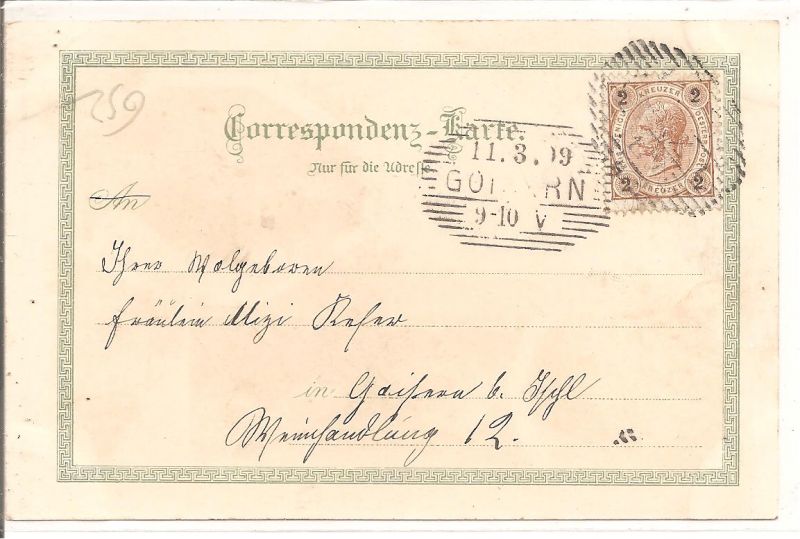 259
Correspondenz-Karte.
Nur für die Adresse
2 KREUZER 2
2 KREUZER 2
11.3.99
GOI ERN
9-10 V
An
Ihrer Wolgeboren
Fräulein Mizi Refer
in Goisern b. Ischl
Weinhandlung 12.